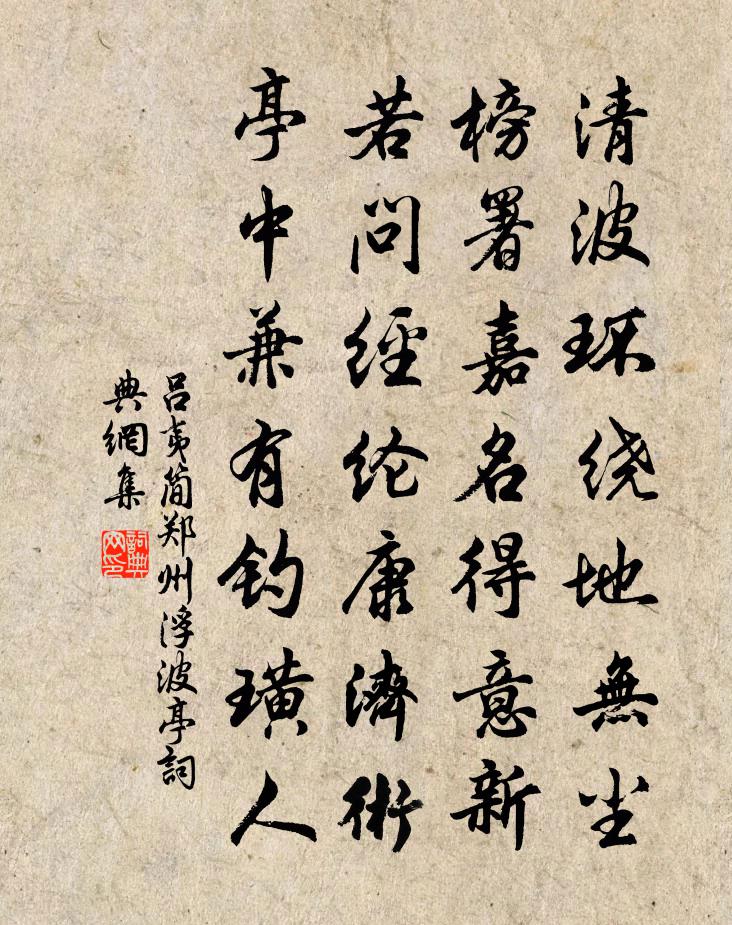 清波环绕地無尘
榜署嘉名得意新
若问經纶康濟術
亭中兼有钓璜人
吕夷简郑州浮波亭詞
典網集
詞典
网印